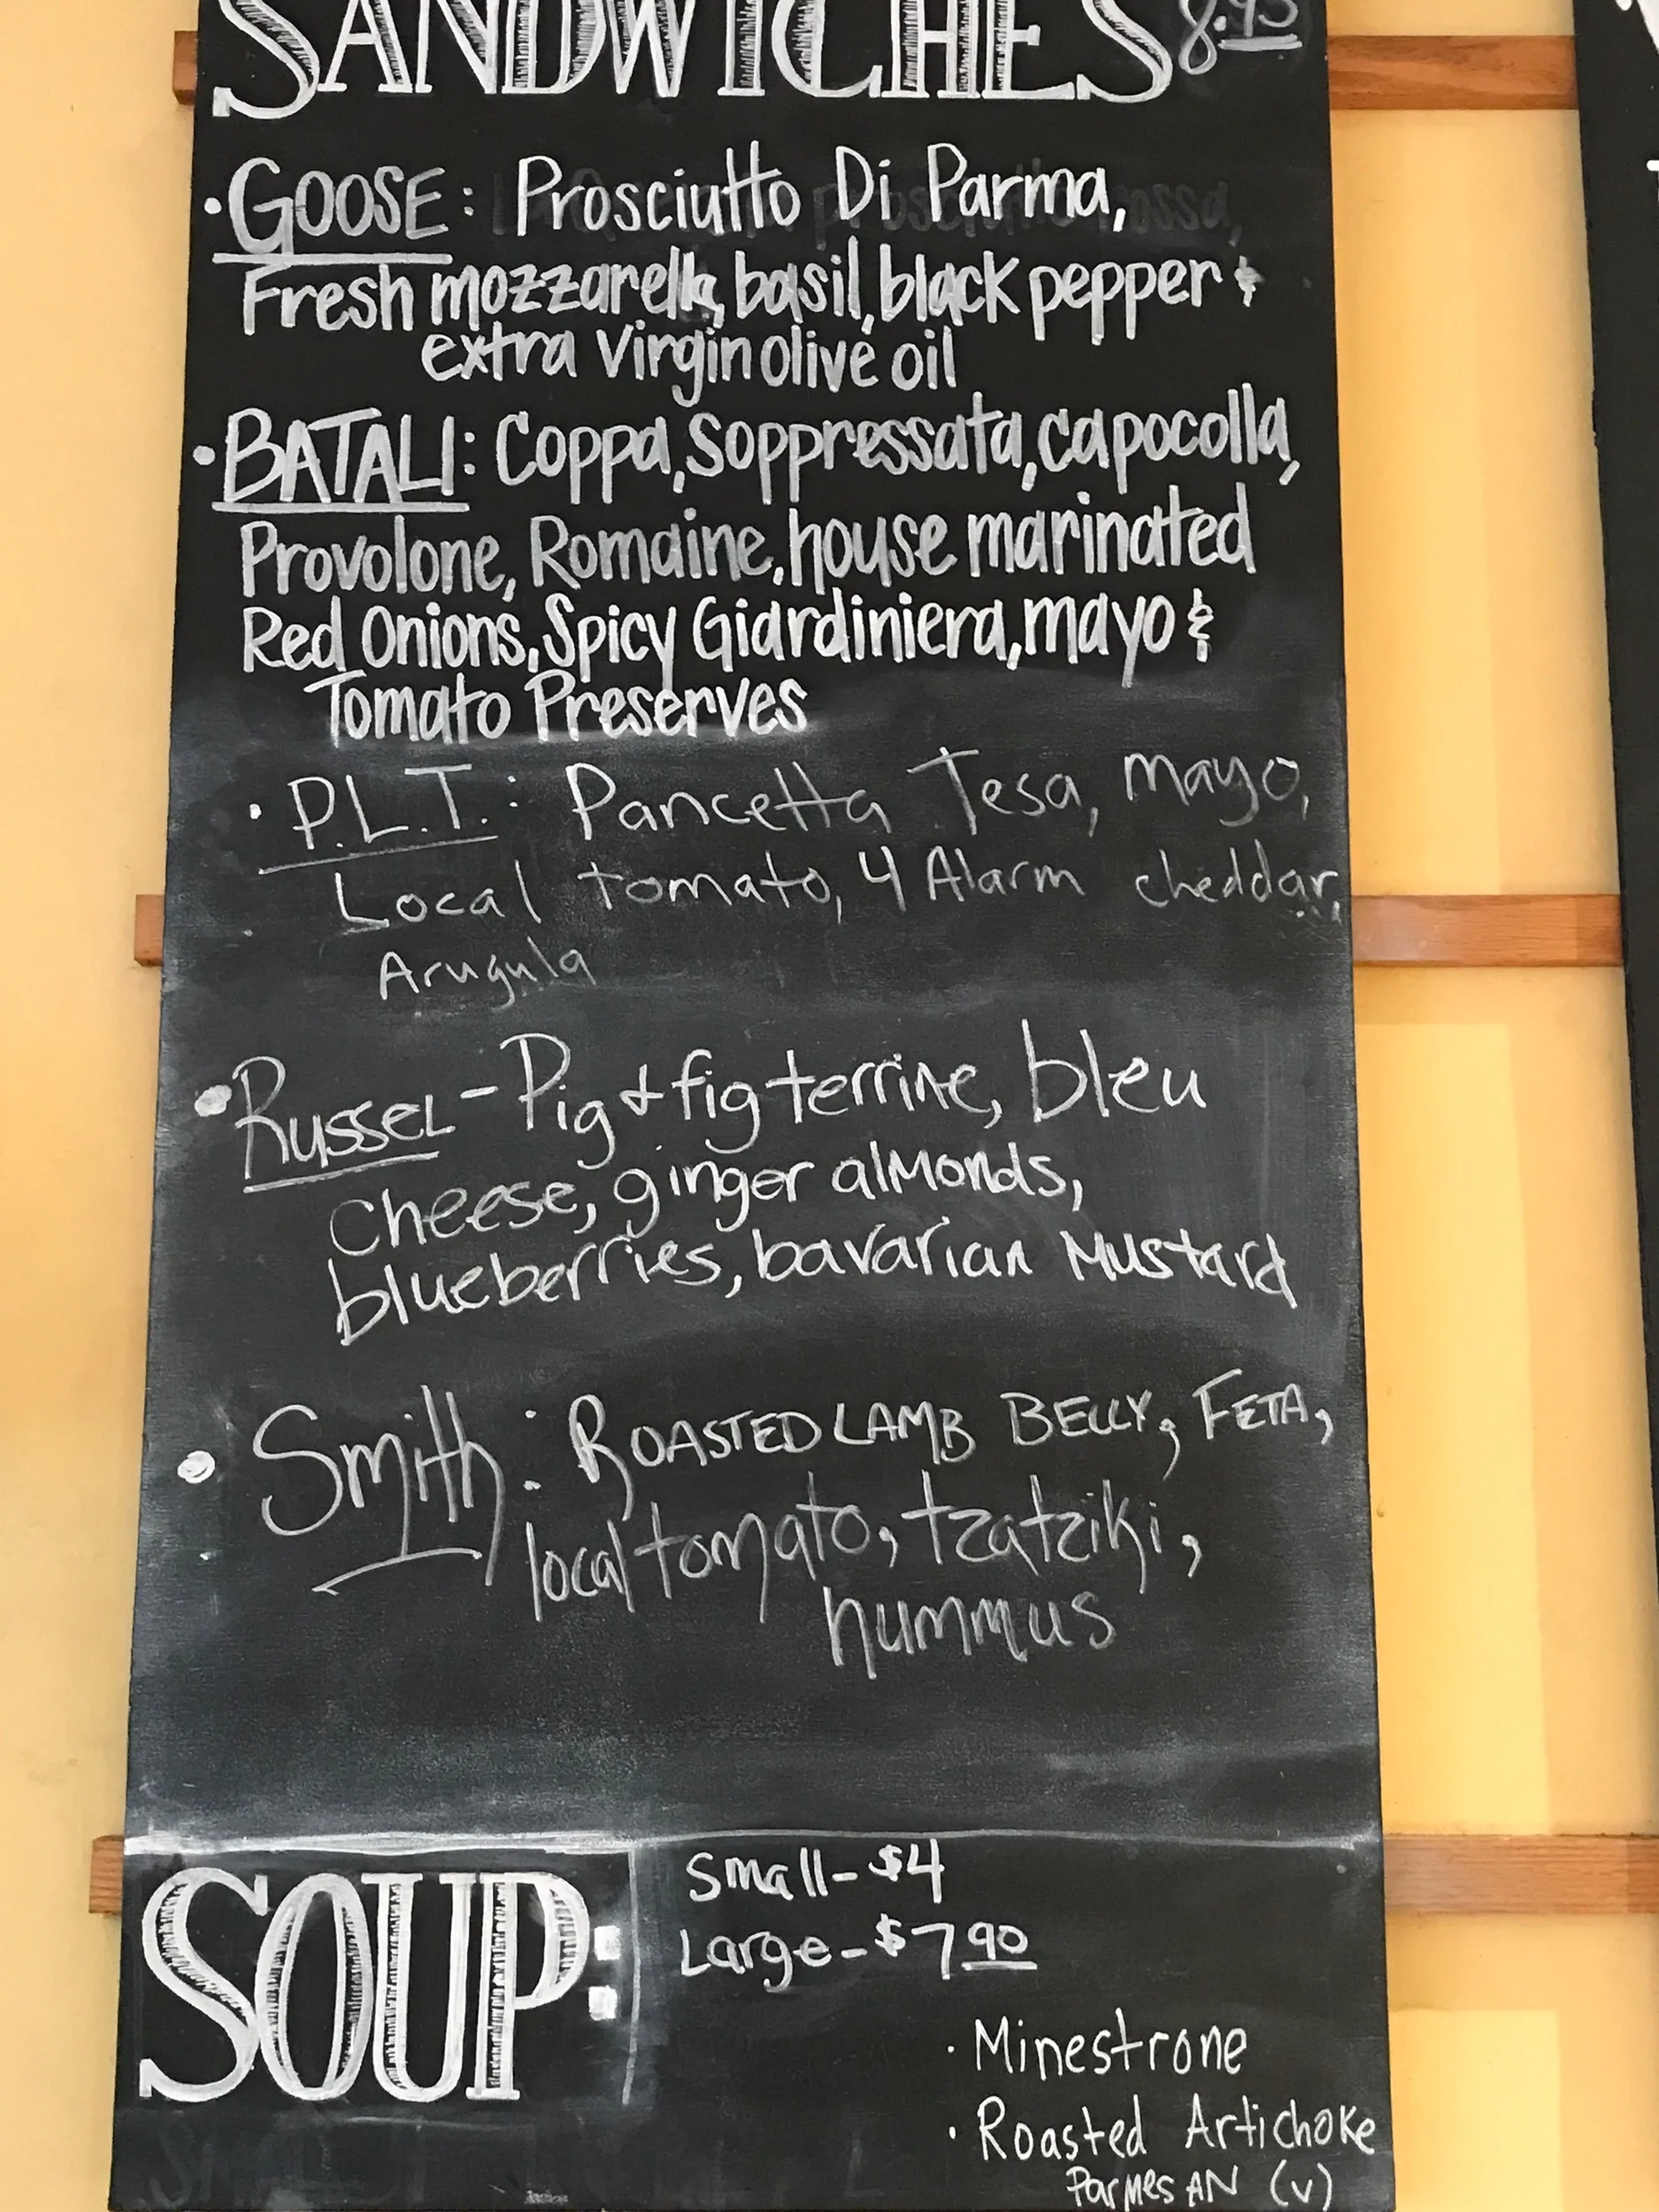 SANDWICHES
• GOOSE: Prosciutto Di Parma,
Fresh mozzarella, basil, black pepper &
extra Virgin olive oil
• BATALI: Coppa, Soppressata, capocolla,
Provolone, Romaine, house marinated
Red Onions, Spicy Giardiniera, mayo &
Tomato Preserves
• P.L.T.: Pancetta Tesa, mayo,
Local tomato, 4 Alarm cheddar,
Arugula
• Russel - Pig & fig terrine, bleu
cheese, ginger almonds,
blueberries, bavarian Mustard
• Smith: ROASTED LAMB BELLY, FETA,
local tomato, tzatziki,
hummus
SOUP:
Small - $4
Large - $7.90
• Minestrone
• Roasted Artichoke
Parmesan (v)